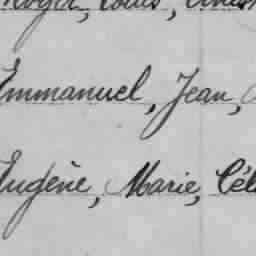 Roger, Louis,
Emmanuel, Jean,
Eugène, Marie, Cél